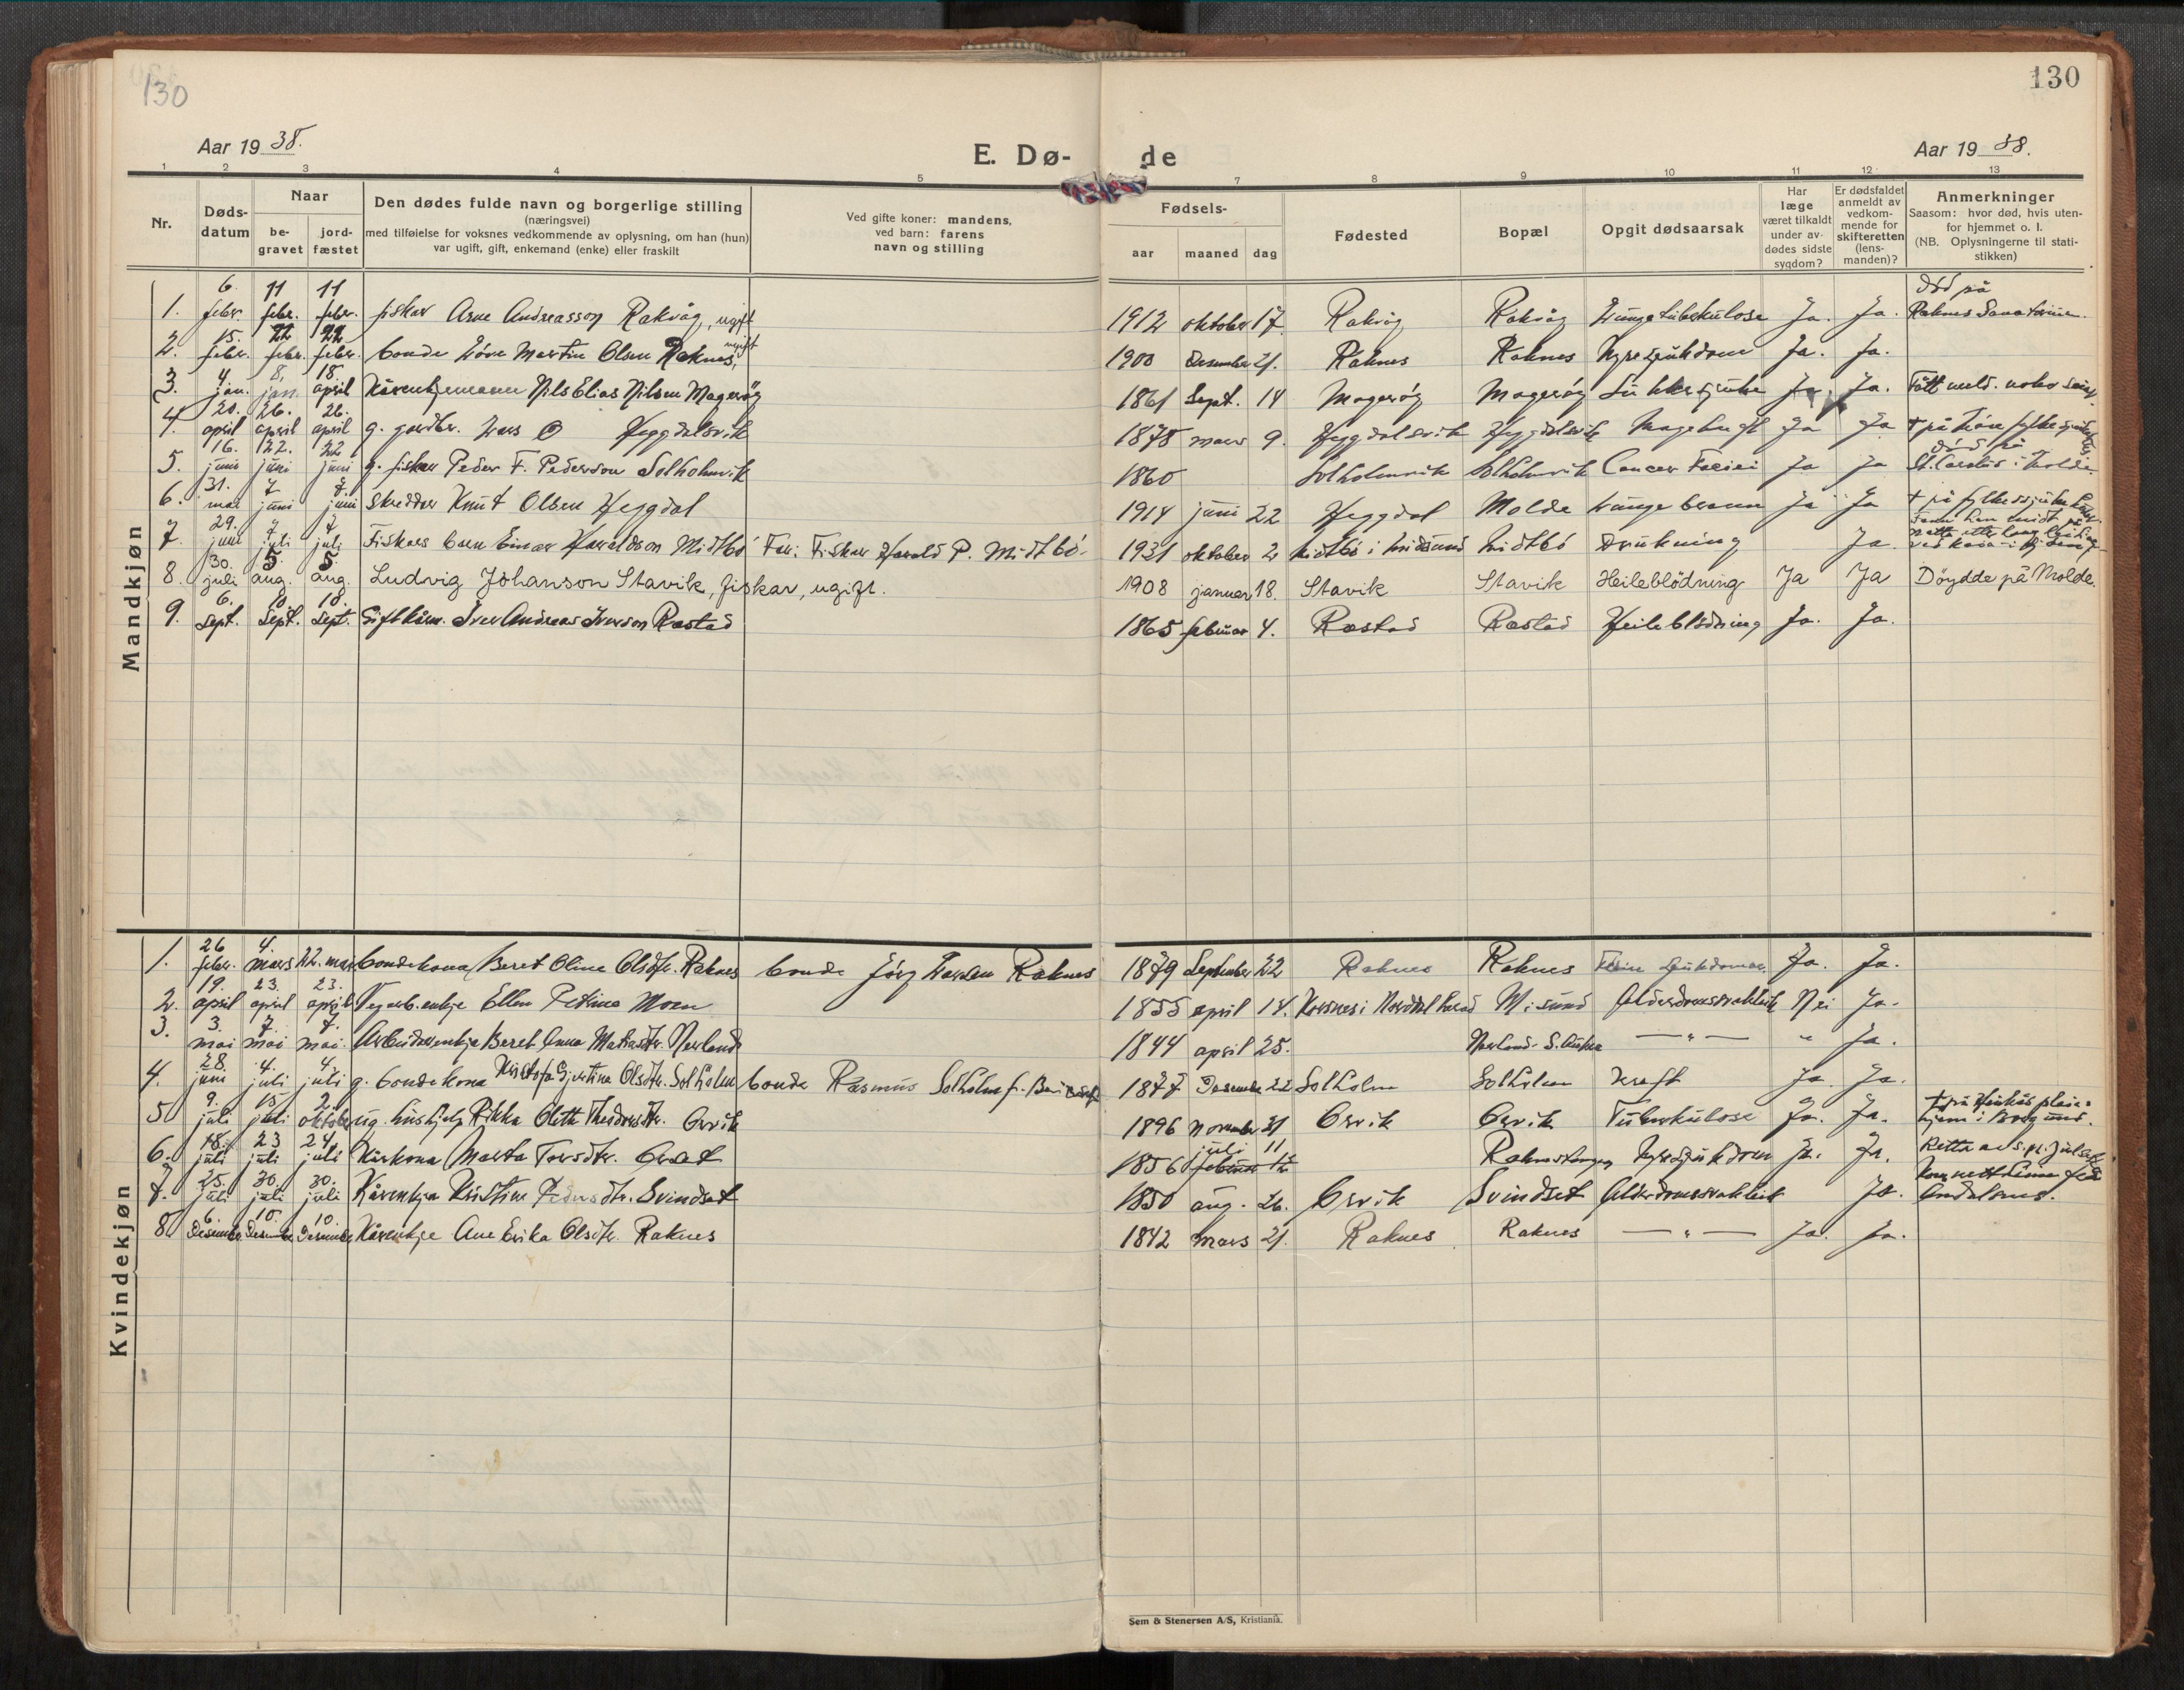 130
130
Aar 19 38.
E. Dø-
de
Aar 19 38.
1 2 3 4 5 7 8 9 10 11 12 13
Nr.
Døds-
datum
Naar
be-
gravet
jord-
fæstet
Den dødes fulde navn og borgerlige stilling
(næringsvei)
med tilføielse for voksnes vedkommende av oplysning, om han (hun)
var ugift, gift, enkemand (enke) eller fraskilt
Ved gifte koner: mandens,
ved barn: farens
navn og stilling
Fødsels-
aar maaned dag
Fødested
Bopæl
Opgit dødsaarsak
Har
læge
været tilkaldt
under av-
dødes sidste
sygdom?
Er dødsfaldet
anmeldt av
vedkom-
mende for
skifteretten
(lens-
manden)?
Anmerkninger
Saasom: hvor død, hvis uten-
for hjemmet o. l.
(NB. Oplysningerne til stati-
stikken)
Mandkjøn
1. 6. febr. 11 febr. 11 febr. fiskar Arne Andreasson Rakvåg, ugift 1912 oktober 17. Rakvåg Rakvåg Lungetuberkulose Ja. Ja. Död på Raknes Sanatorium.
2. 15. febr. 22 febr. 22 febr. bonde Martin Olsen Raknes, ugift 1900 Desember 21. Raknes Raknes Nyresjukdom Ja. Ja.
3. 4. jan. 8. jan. 18. april Kårenkjemann Nils Elias Nilsen Magerøy 1861 Sept. 14 Magerøy Magerøy Sukkersjuke Ja. Ja. Fått meld. noko seint.
4. 20. april 26. april 26. april g. gardbr. Lars O Heggdalsvik 1878 mars 9. Heggdalsvik Heggdalsvik Ja Ja + på
5. 16. juni 22. juni 22 juni g. fiskar Peder F. Pederson Solholmvik 1860 Solholmvik Solholmvik Cancer Faciei Ja Ja Död på St. Carolus i Molde.
6. 31. mai 7 juni 7. juni Skreddar Knut Olsen Heggdal 1914 juni 22 Heggdal Molde Lungebrann Ja Ja + på fylkessjukeh.
7. 29. juni 7 juli 7 juli Fiskars barn Einar Haraldson Midtbö Far: Fiskar Harald P. Midtbö. 1931 oktober 2 Midtbö i Midsund Midtbö Drukning Ja.
8. 30. juli 5. aug. 5. aug. Ludvig Johanson Stavik, fiskar, ugift. 1908 januar 18. Stavik Stavik Heileblödning Ja Ja Döydde på Molde.
9. 6. Sept. 10. Sept. 10. Sept. Gift kårm. Iver Andreas Iverson Rastad 1865 februar 4. Rastad Rastad Heileblödning Ja. Ja.
Kvindekjøn
1. 26 febr. 4. mars 22. mars bondekona Beret Oline Olsdtr. Raknes bonde Jörg Larsen Raknes 1879 September 22 Raknes Raknes Ja. Ja.
2. 19. april 23. april 23. april Vegarb.enkje Ellen Petrina Moen 1855 april 14. Korsnes i Norddal herad Misund Alderdomssvakleik Nei Ja.
3. 3. mai 7. mai 7. mai. Arbeidarenkje Beret Anna Matiasdtr. Nerland 1844 april 25. Nerland S. Aukra — " — " Ja.
4. 28. juni 4. juli 4. juli g. bondekona Kristofa Gjertina Olsdtr. Solholm bonde Rasmus Solholm 1877 Desember 22 Solholm Solholm Kreft Ja. Ja.
5 9. juli 15 juli 2 oktober ug. hushjelp Rikka Oletta Theodorsdtr. Orvik 1896 November 21 Orvik Orvik Tuberkulose Ja. Ja. + på pleie-hjem i
6. 18. juli 23 juli 24. juli Kårkona Marta Torsdtr. Orset 1856 februar 12 juli 11 Raknestangen Nyresjukdom Ja. Ja.
7 25. juli 30. juli 30. juli Kårenkja Kristine Pedersdtr. Svindset 1850 aug. 26. Orvik Svindset Alderdomssvakleik Ja.
8. 6. Desember 10. Desember 10. Desember Kårenkje Ane Erika Olsdtr. Raknes 1842 mars 21. Raknes Raknes — " — Ja. Ja.
Sem & Stenersen A/S, Kristiania.